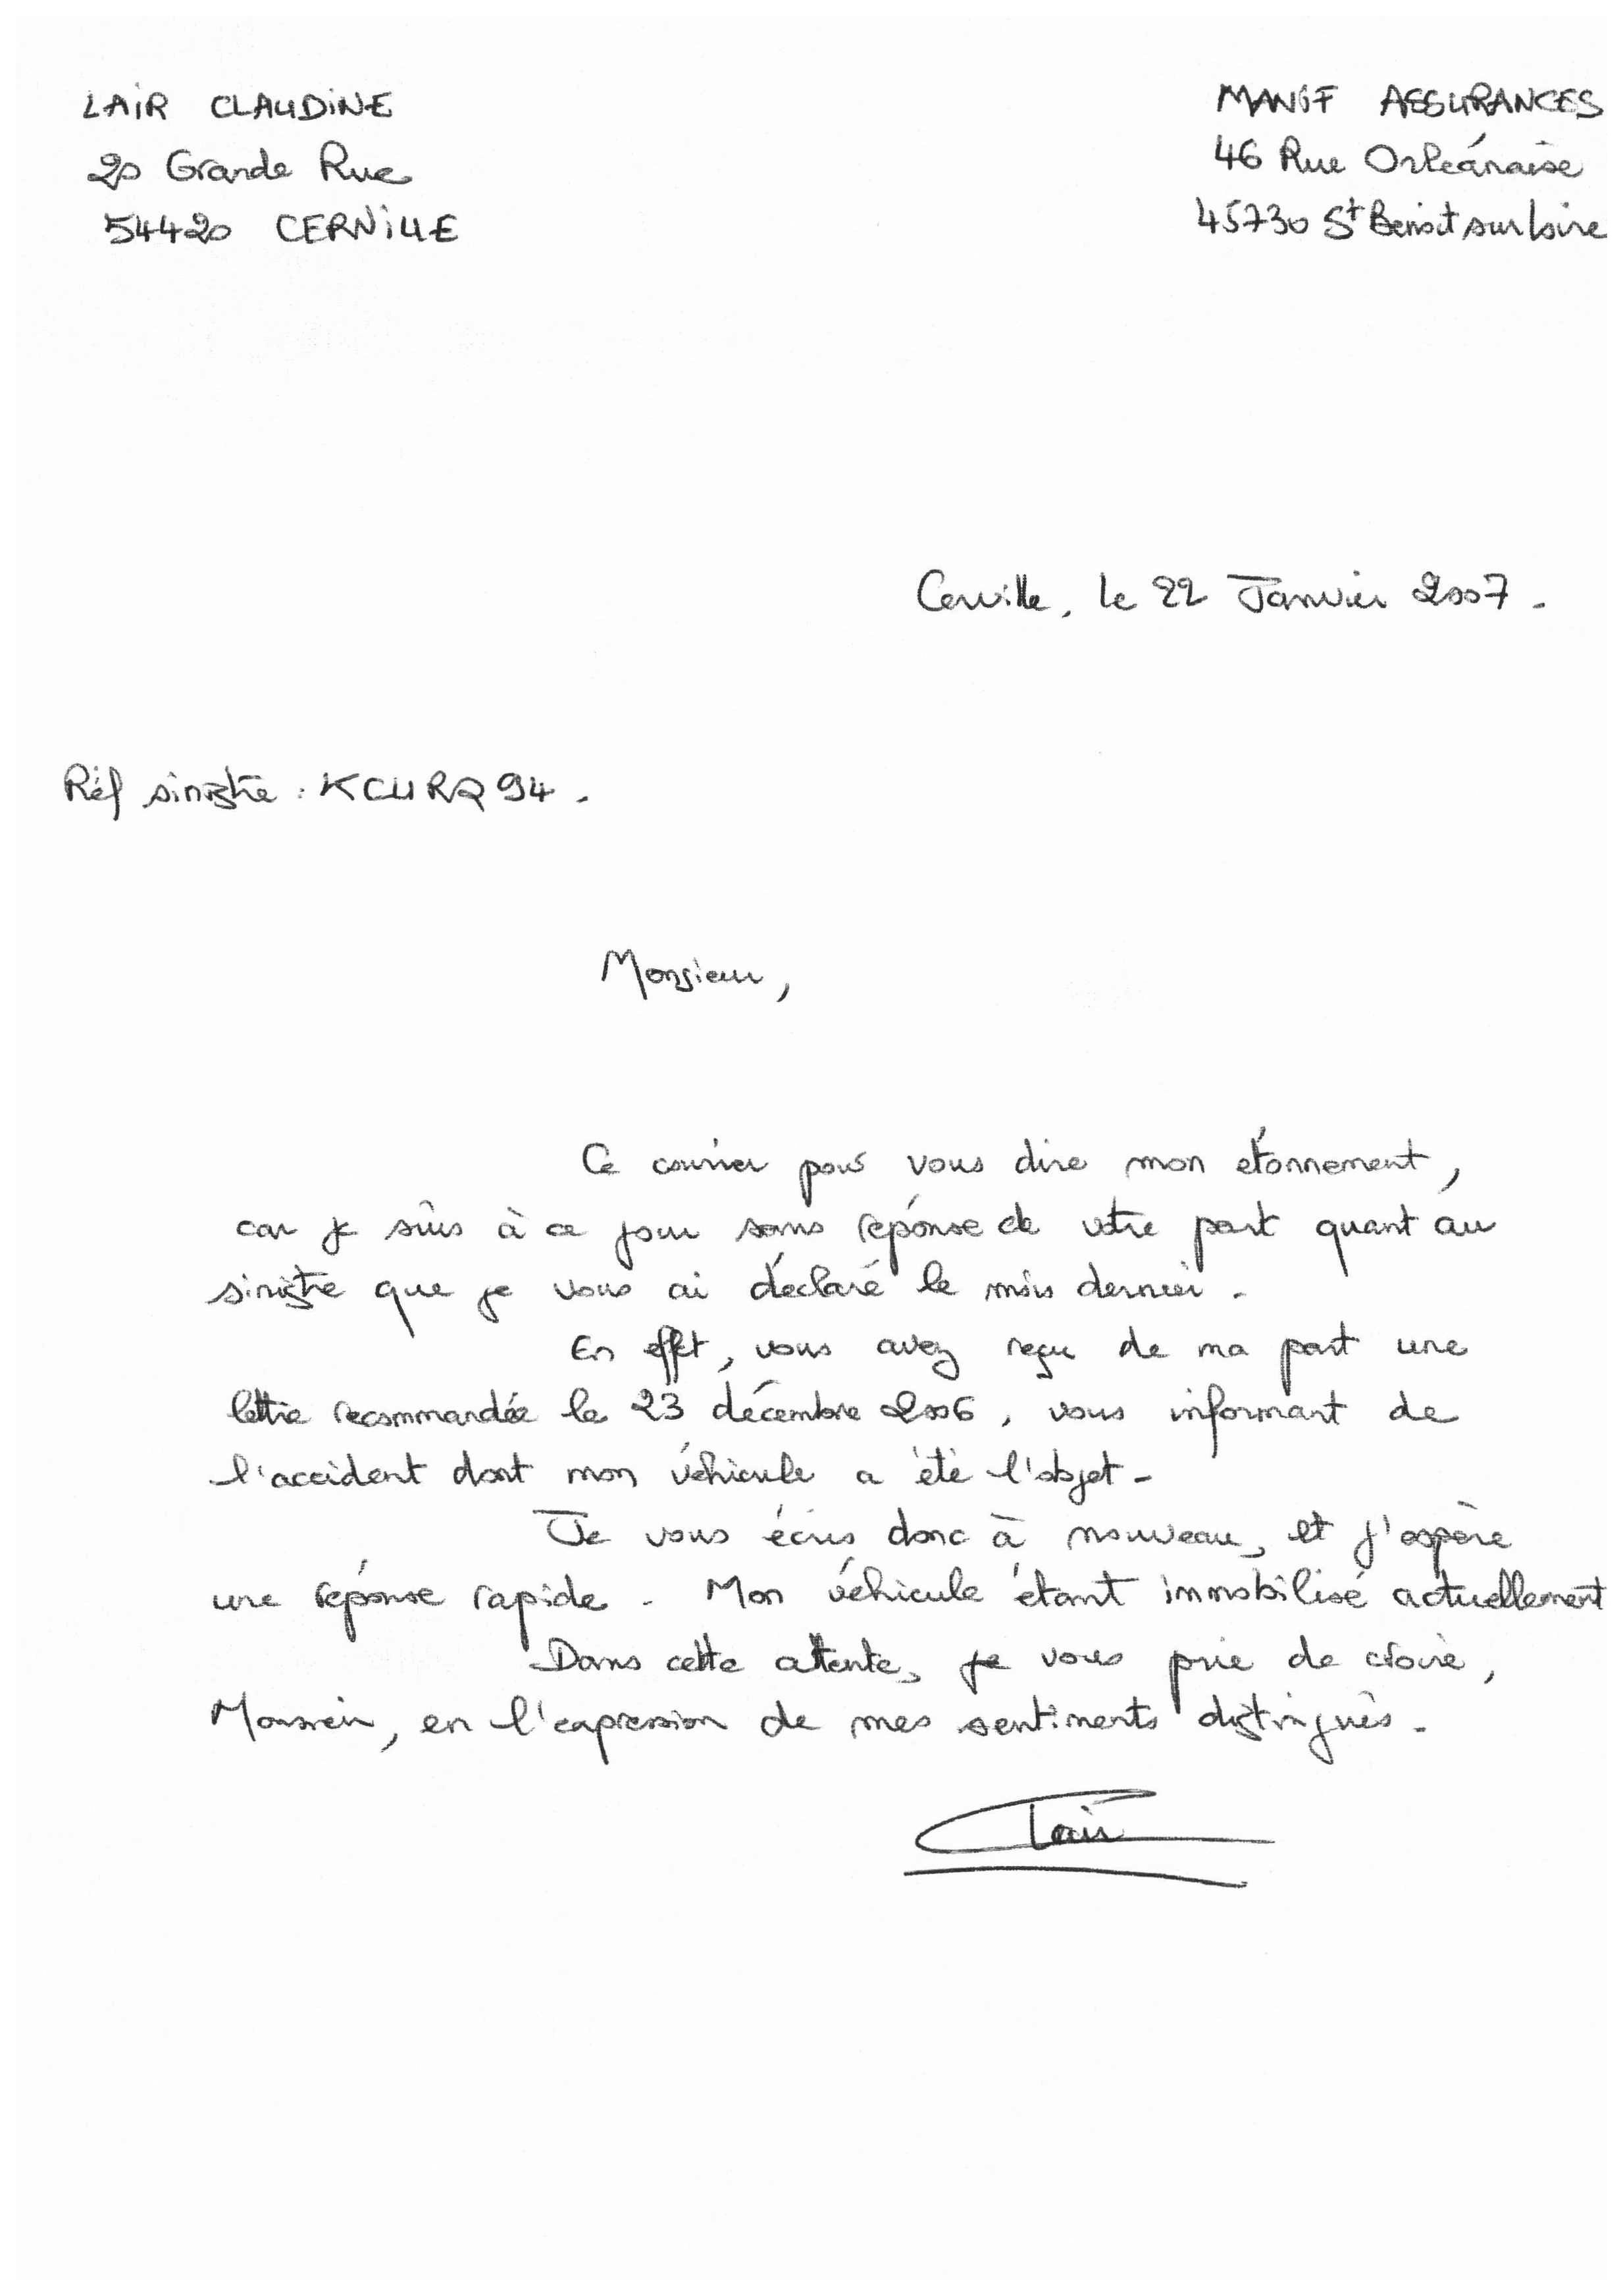 LAIR CLAUDINE
20 Grande Rue
54420 CERVILLE
MANIF ASSURANCES
46 Rue Orléanaise
45730 St Benoit sur Loire
Cerville, le 22 Janvier 2007.
Réf sinistre : KCURQ94.
Monsieur,
Ce courrier pour vous dire mon étonnement,
car je suis à ce jour sans réponse de votre part quant au
sinistre que je vous ai déclaré le mois dernier.
En effet, vous avez reçu de ma part une
lettre recommandée le 23 décembre 2006, vous informant de
l'accident dont mon véhicule a été l'objet.
Je vous écris donc à nouveau, et j'espère
une réponse rapide. Mon véhicule étant immobilisé actuellement
Dans cette attente, je vous prie de croire,
Monsieur, en l'expression de mes sentiments distingués.
Lair